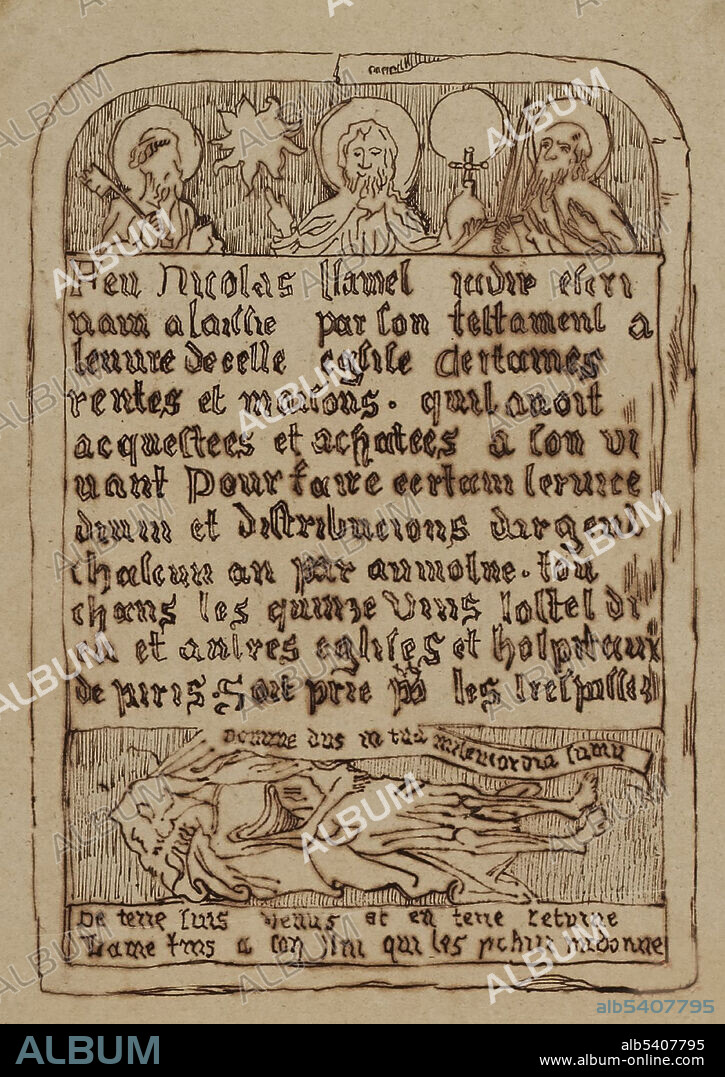 Feu Nicolas flamel jadis escri
uain a laissie par son testament a
leuure de celle eglise Certaines
rentes et maisons . quil auoit
acquestees et achatees a son vi
uant Pour faire certain seruice
diuin et distribucions dargent
chascun an par aumosne . tou
chans les quinze Vins lostel di
eu et autres eglises et hospitaux
de paris . Soit prie les trespasses
Domine dus in tua misericordia
De terre suis venus et en terre retorne
Lame a toy qui les
ALBUM
alb5407795
ALBUM
alb5407795
www.album-online.com